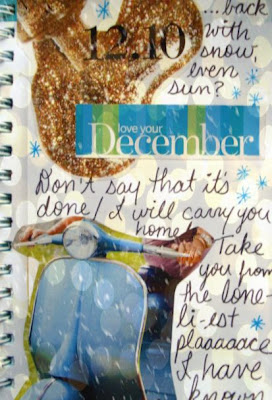 ...back
with
12.10
snow,
even
sun?
love your
December
Don't say that it's
done/I will carry you
home! Take
you from
the lone-
li-est
plaaaaace
I have
known